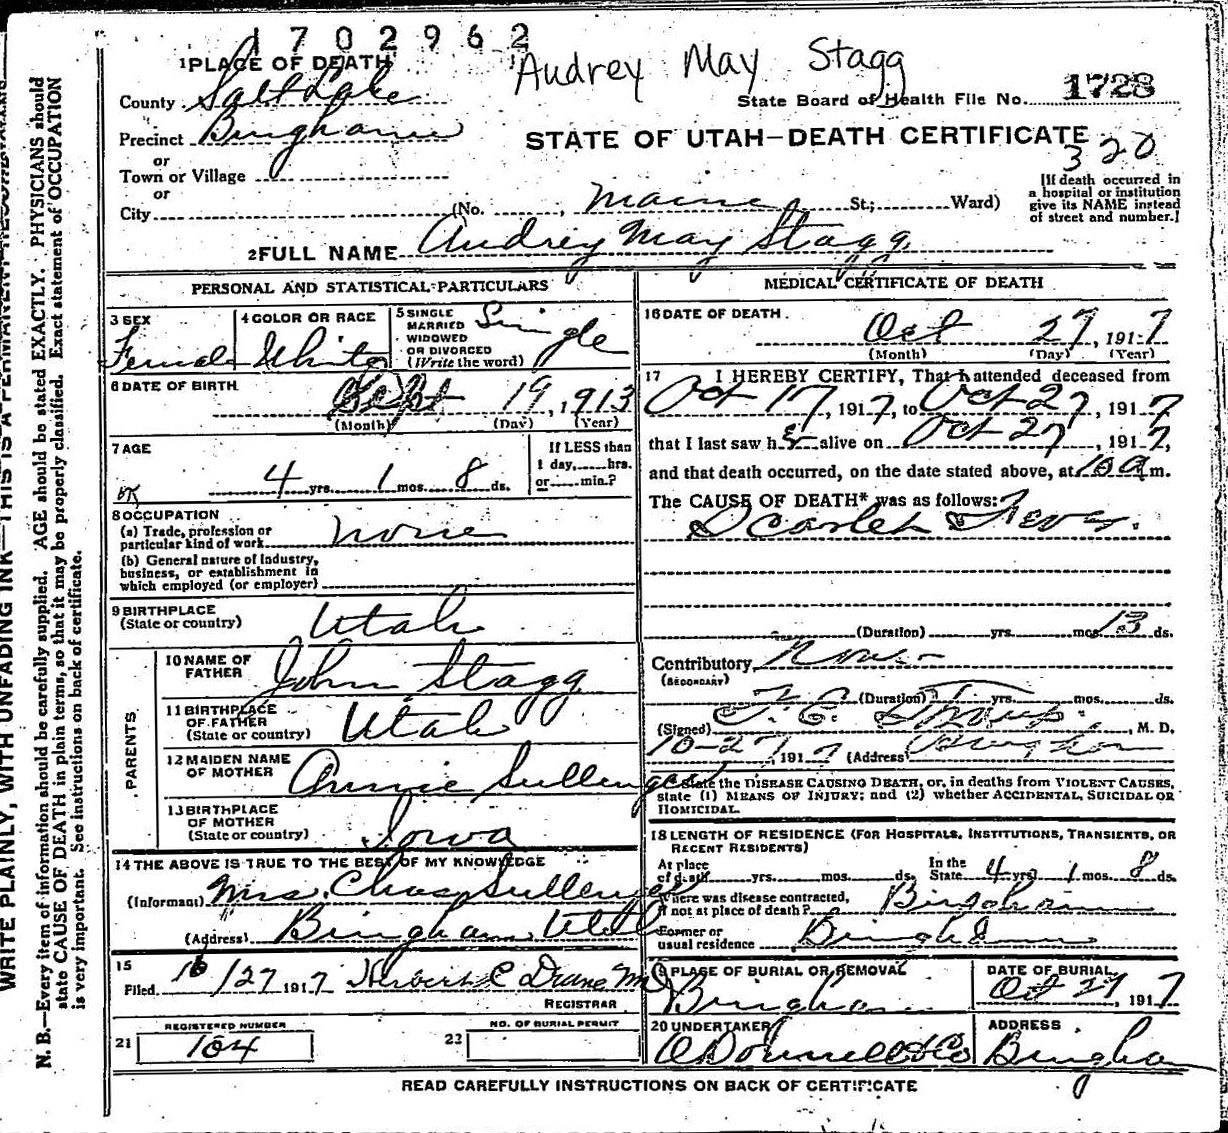 1702962
Audrey May Stagg
1 PLACE OF DEATH
County Salt Lake
State Board of Health File No. 1728
Precinct Bingham
STATE OF UTAH—DEATH CERTIFICATE
320
or
Town or Village
or
City (No. , Maine St.; Ward)
[If death occurred in
a hospital or institution
give its NAME instead
of street and number.]
2 FULL NAME Audrey May Stagg
PERSONAL AND STATISTICAL PARTICULARS
3 SEX
Female
4 COLOR OR RACE
White
5 SINGLE
MARRIED
WIDOWED
OR DIVORCED
(Write the word)
Single
6 DATE OF BIRTH
Sept 19, 1913
(Month) (Day) (Year)
7 AGE
4 yrs. 1 mos. 8 ds.
If LESS than
1 day, hrs.
or min.?
8 OCCUPATION
(a) Trade, profession or
particular kind of work none
(b) General nature of industry,
business, or establishment in
which employed (or employer)
9 BIRTHPLACE
(State or country) Utah
PARENTS
10 NAME OF
FATHER John Stagg
11 BIRTHPLACE
OF FATHER
(State or country) Utah
12 MAIDEN NAME
OF MOTHER Annie Sullenger
13 BIRTHPLACE
OF MOTHER
(State or country) Iowa
14 THE ABOVE IS TRUE TO THE BEST OF MY KNOWLEDGE
(Informant) Mrs. Chas Sullenger
(Address) Bingham Utah
15
Filed 10/27 1917 Herbert C Duane MD
REGISTRAR
REGISTERED NUMBER
21 104
NO. OF BURIAL PERMIT
22
MEDICAL CERTIFICATE OF DEATH
16 DATE OF DEATH
Oct 27, 1917
(Month) (Day) (Year)
17 I HEREBY CERTIFY, That I attended deceased from
Oct 17, 1917, to Oct 27, 1917
that I last saw her alive on Oct 27, 1917,
and that death occurred, on the date stated above, at 10 am.
The CAUSE OF DEATH* was as follows:
Scarlet Fever.
(Duration) yrs. mos. 13 ds.
Contributory None
(SECONDARY)
(Duration) yrs. mos. ds.
(Signed) , M. D.
10-27, 1917 (Address) Bingham
*State the DISEASE CAUSING DEATH, or, in deaths from VIOLENT CAUSES,
state (1) MEANS OF INJURY; and (2) whether ACCIDENTAL, SUICIDAL OR
HOMICIDAL.
18 LENGTH OF RESIDENCE (FOR HOSPITALS, INSTITUTIONS, TRANSIENTS, OR
RECENT RESIDENTS)
At place
of death yrs. mos. ds.
In the
State 4 yrs 1 mos 8 ds.
Where was disease contracted,
if not at place of death? Bingham
Former or
usual residence Bingham
19 PLACE OF BURIAL OR REMOVAL
Bingham
DATE OF BURIAL
Oct 27, 1917
20 UNDERTAKER
O'Donnell & Co
ADDRESS
Bingham
READ CAREFULLY INSTRUCTIONS ON BACK OF CERTIFICATE
WRITE PLAINLY, WITH UNFADING INK—THIS IS A PERMANENT RECORD
N. B.—Every item of information should be carefully supplied. AGE should be stated EXACTLY. PHYSICIANS should
state CAUSE OF DEATH in plain terms, so that it may be properly classified. Exact statement of OCCUPATION
is very important. See instructions on back of certificate.